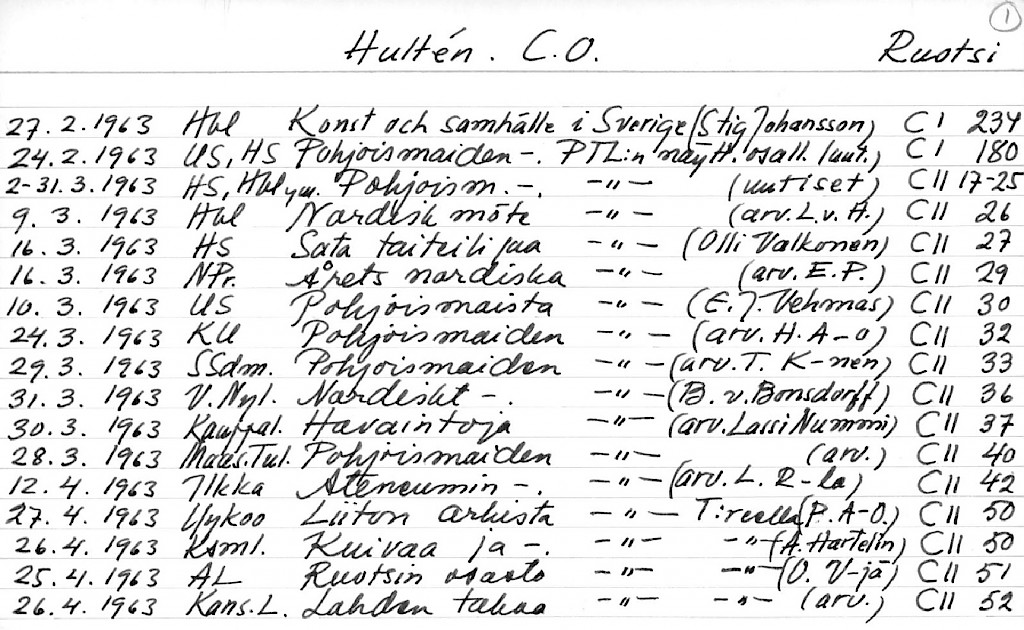 1
Hultén. C.O. Ruotsi
27.2.1963 Hbl Konst och samhälle i Sverige (Stig Johansson) C I 234
24.2.1963 US, HS Pohjoismaiden -. PTL:n näy H. osall. (uut.) C I 180
2-31.3.1963 HS, Hbl ym. Pohjoism. -. -"- (uutiset) C II 17-25
9.3.1963 Hbl Nordisk möte -"- (arv. L.v.H.) C II 26
16.3.1963 HS Sata taiteilijaa -"- (Olli Valkonen) C II 27
16.3.1963 NPr. Årets nordiska -"- (arv. E.P.) C II 29
10.3.1963 US Pohjoismaista -"- (E.J. Vehmas) C II 30
24.3.1963 KU Pohjoismaiden -"- (arv. H. A-o) C II 32
29.3.1963 SSdm. Pohjoismaiden -"- (arv. T. K-nen) C II 33
31.3.1963 V.Nyl. Nordiskt -. -"- (B. v. Bonsdorff) C II 36
30.3.1963 Kauppal. Havaintoja -"- (arv. Lassi Nummi) C II 37
28.3.1963 Maas. Tul. Pohjoismaiden -"- (arv.) C II 40
12.4.1963 Ilkka Ateneumin -. -"- (arv. L. R-la) C II 42
27.4.1963 Uykoo Liiton arkista -"- T:reella (P. A-O.) C II 50
26.4.1963 Ksml. Kuivaa ja -. -"- -"- (A. Hartelin) C II 50
25.4.1963 AL Ruotsin osasto -"- -"- (O. V-jä) C II 51
26.4.1963 Kans.L. Lahden takaa -"- -"- (arv.) C II 52